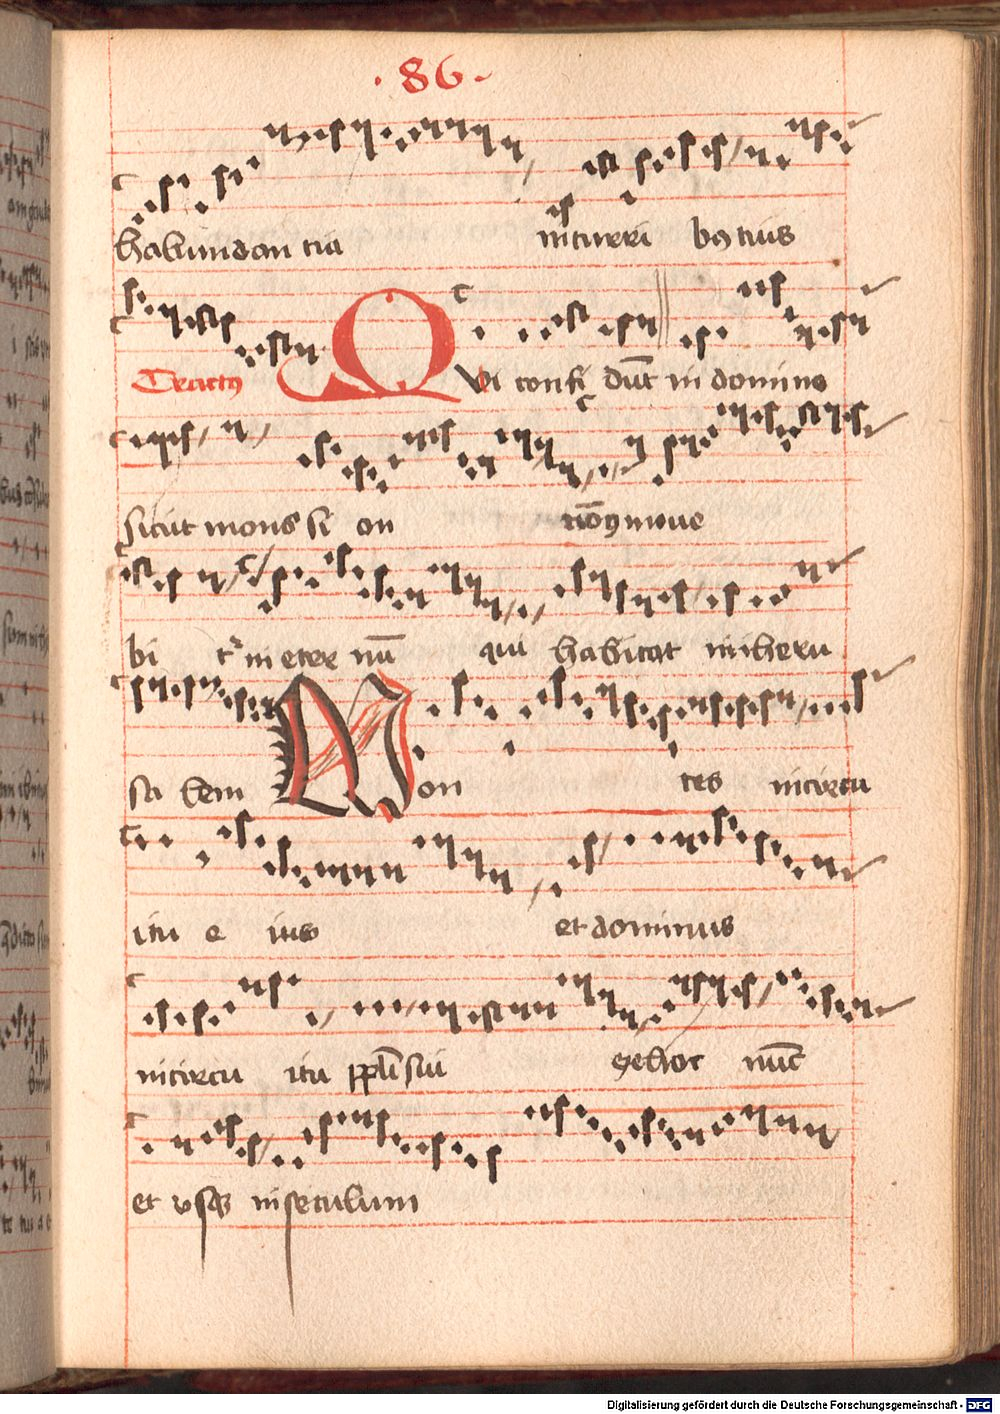 · 86 ·
habundan cia in turri bꝯ tuis
Tractꝯ Qvi confi dūt in domino
sicut mons si on nō ꝯmoue
bi tᷣ in eter nū qui habitat in iheru
sa lem Mon tes in circu
itu e ius et dominus
in circu itu ppl̄i sui ex hoc nūc
et vsqꝫ in seculum
Digitalisierung gefördert durch die Deutsche Forschungsgemeinschaft - DFG